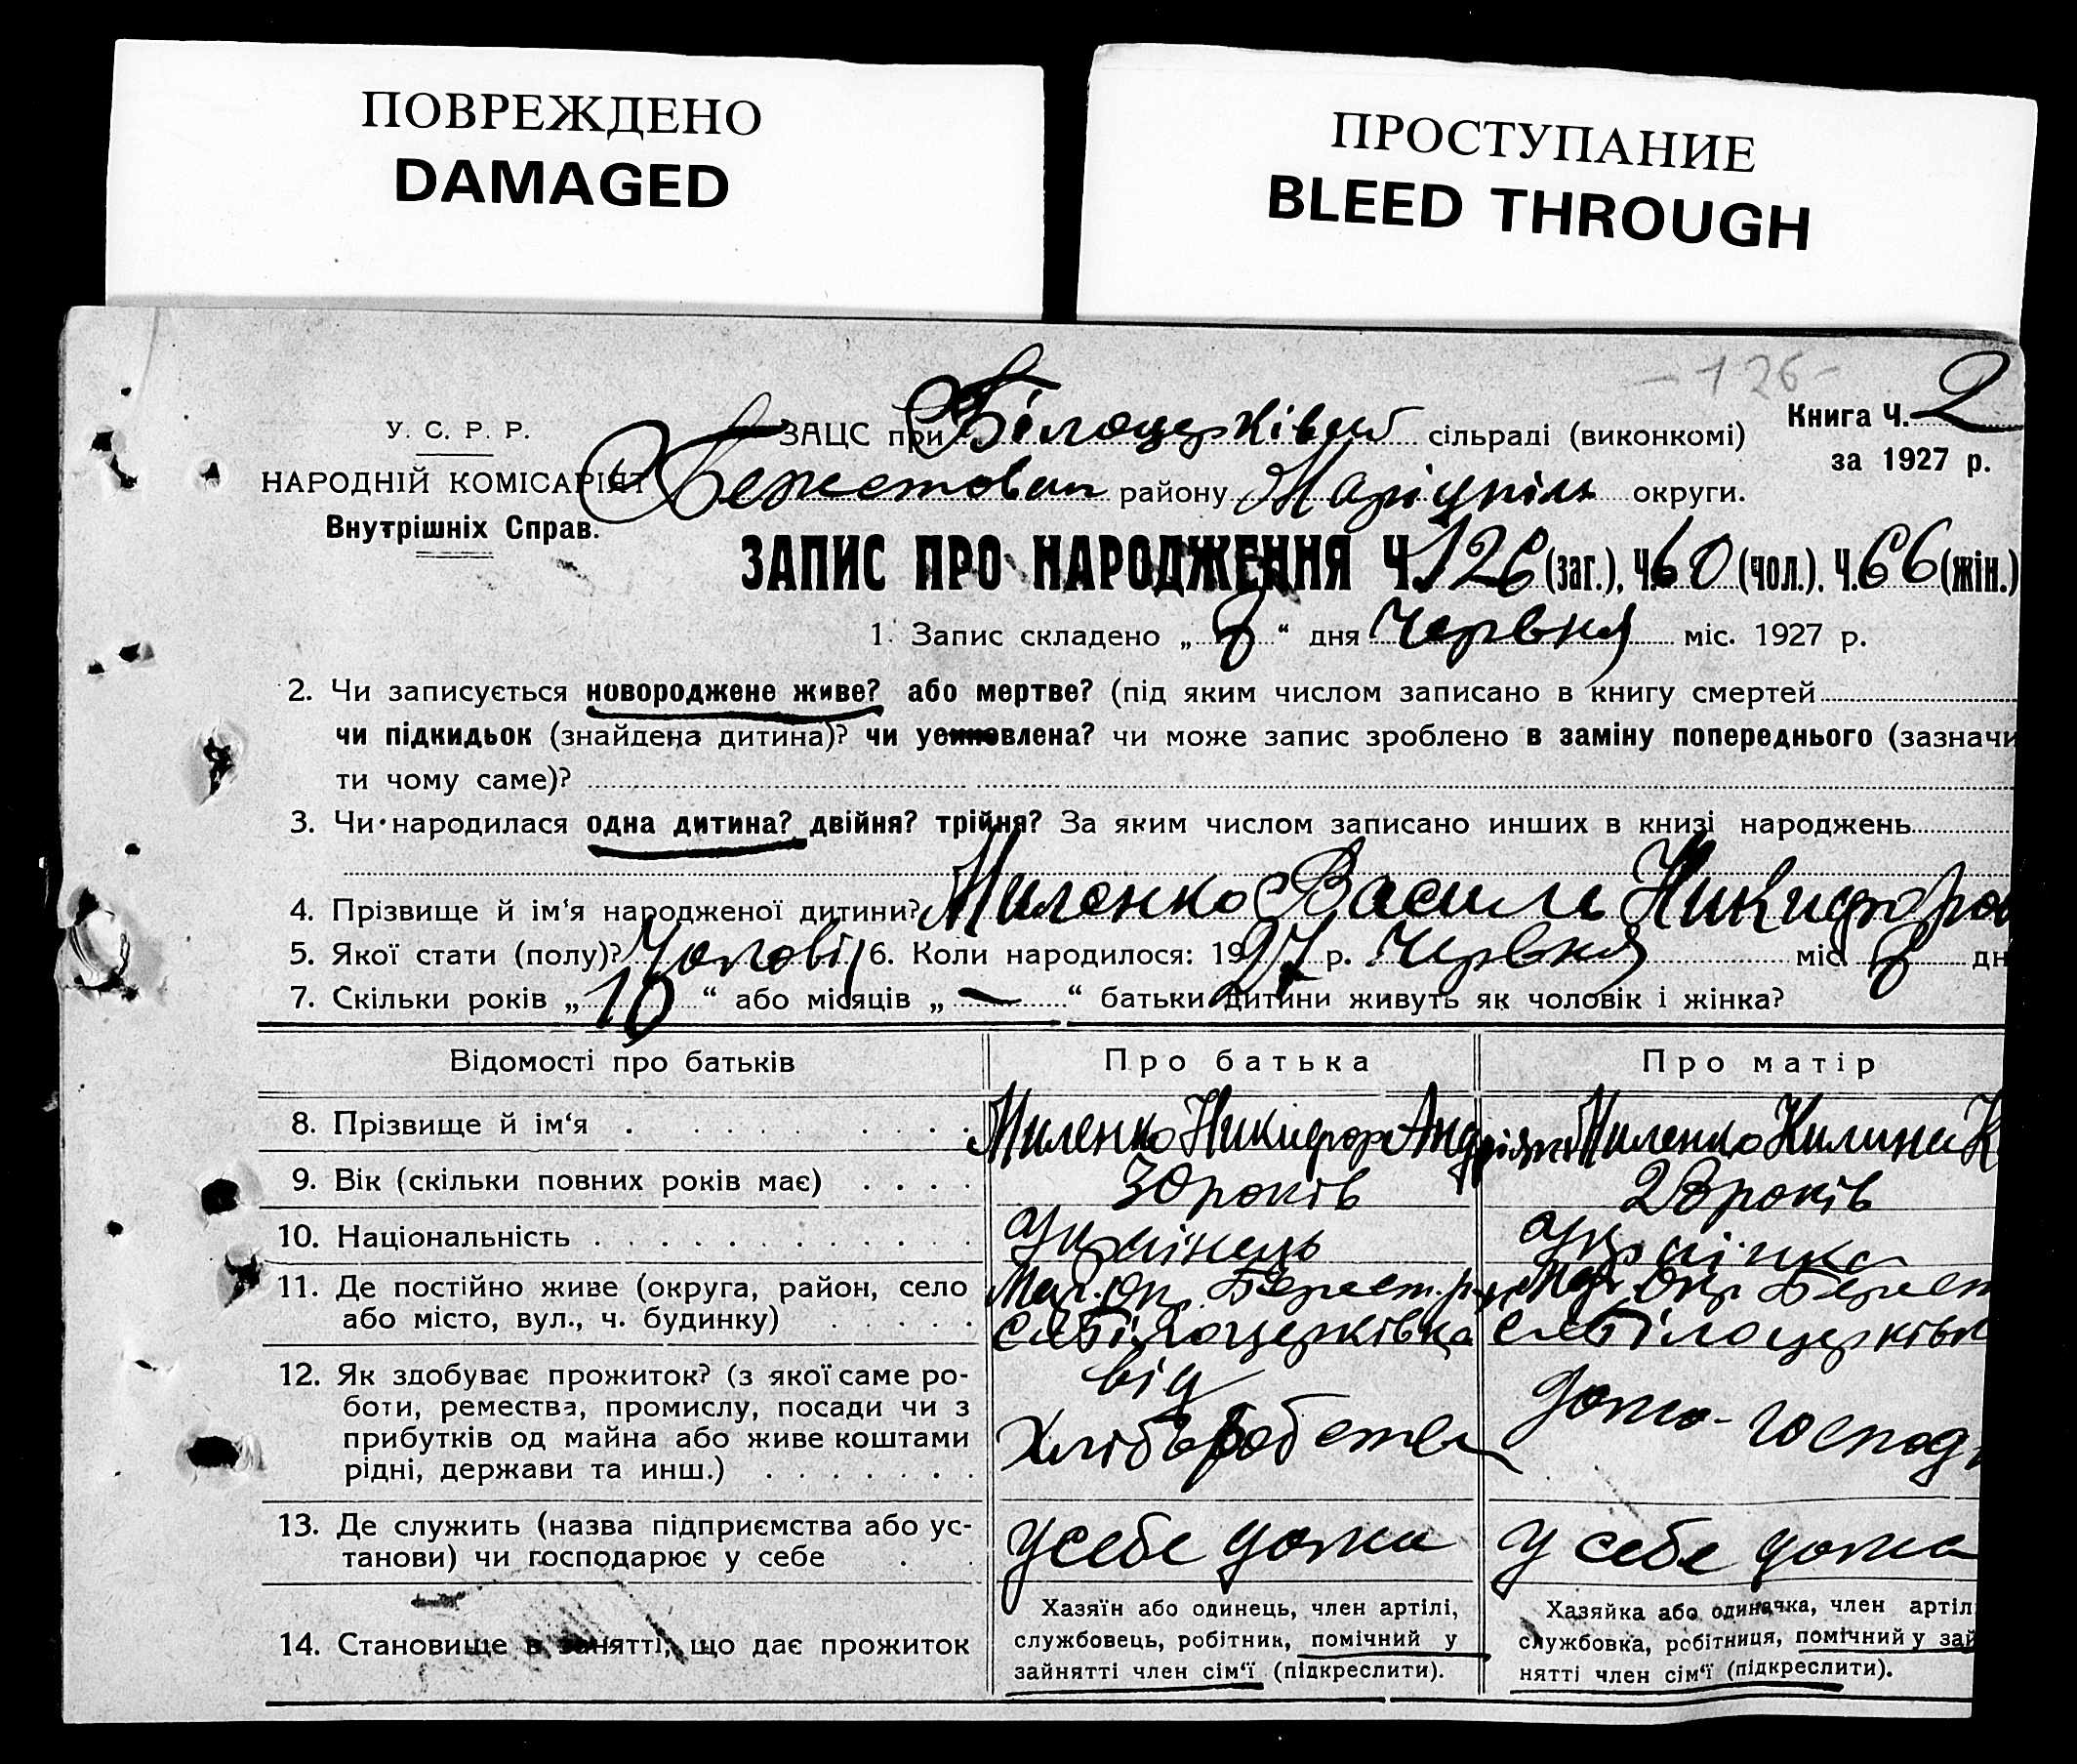 ПОВРЕЖДЕНО
DAMAGED
ПРОСТУПАНИЕ
BLEED THROUGH
- 126 -
Книга Ч. 2
за 1927 р.
У. С. Р. Р.
НАРОДНІЙ КОМІСАРІЯТ
Внутрішніх Справ.
ЗАЦС при Білоцерківській сільраді (виконкомі)
району Маріупіль округи.
ЗАПИС ПРО НАРОДЖЕННЯ Ч. 126 (заг.), Ч. 60 (чол.), Ч. 66 (жін.)
1. Запис складено „ 8 “ дня Червня міс. 1927 р.
2. Чи записується новороджене живе? або мертве? (під яким числом записано в книгу смертей
чи підкидьок (знайдена дитина)? чи уеиновлена? чи може запис зроблено в заміну попереднього (зазначи
ти чому саме)?
3. Чи народилася одна дитина? двійня? трійня? За яким числом записано инших в книзі народжень
4. Прізвище й ім'я народженої дитини? Миленко Василь Никифоров
5. Якої стати (полу)? Чоловіч 6. Коли народилося: 1927 р. Червня міс. 8 дн
7. Скільки років „ 10 “ або місяців „ — “ батьки дитини живуть як чоловік і жінка?
Відомості про батьків
Про батька
Про матір
8. Прізвище й ім‘я
Миленко Никифор
Миленко Килина К
9. Вік (скільки повних років має)
30 років
28 років
10. Національність
українець
українка
11. Де постійно живе (округа, район, село
або місто, вул., ч. будинку)
Мар. Окр. Берест. р.
Білоцерківка
Мар. Окр. Берест
Білоцерківк
12. Як здобуває прожиток? (з якої саме ро-
боти, ремества, промислу, посади чи з
прибутків од майна або живе коштами
рідні, держави та инш.)
від
Хлібробства
домо-господ
13. Де служить (назва підприємства або ус-
танови) чи господарює у себе
у себе дома
у себе дома
14. Становище в занятті, що дає прожиток
Хазяїн або одинець, член артілі,
службовець, робітник, помічний у
зайнятті член сім‘ї (підкреслити).
Хазяйка або одиначка, член артіл
службовка, робітниця, помічний у зай
нятті член сім‘ї (підкреслити).